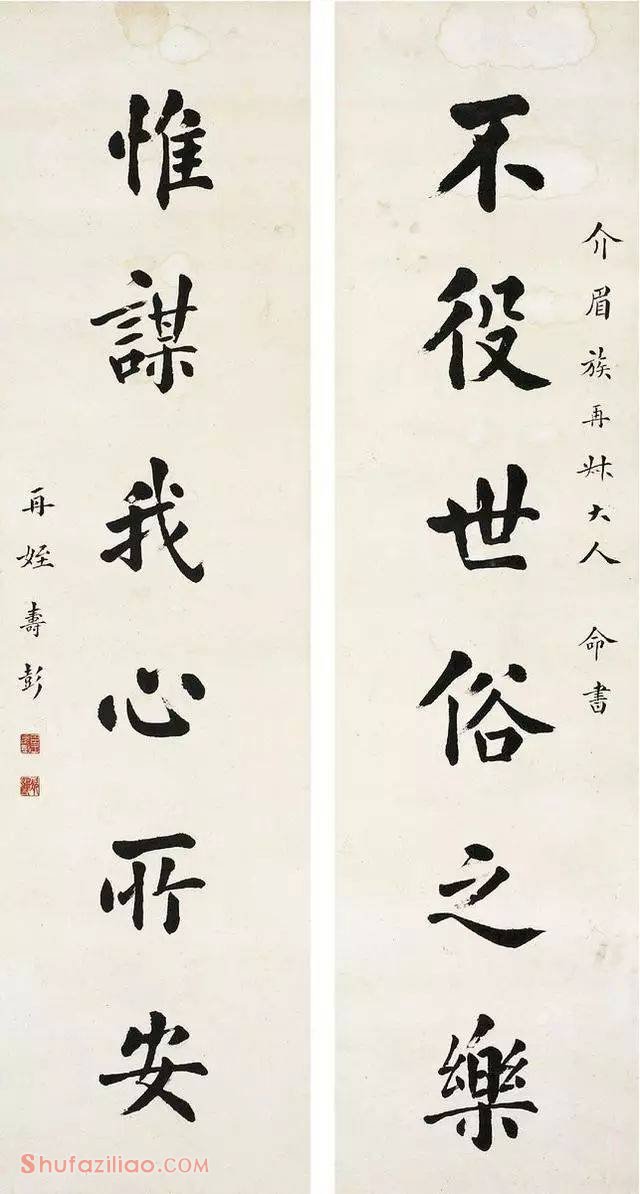 不役世俗之樂
介眉族再叔大人 命書
惟謀我心所安
再姪壽彭
Shufaziliao.COM